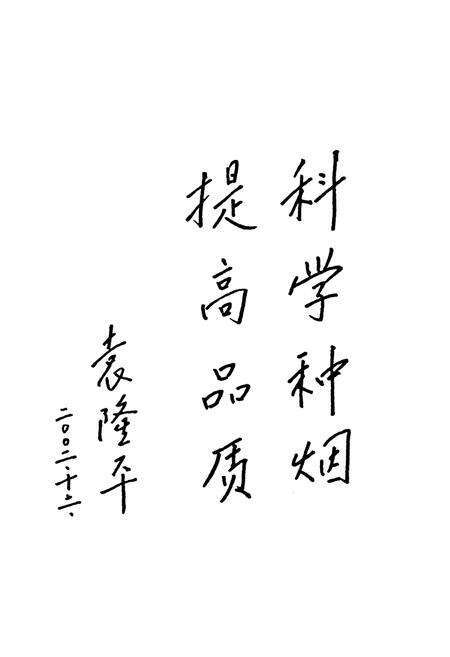 科学种烟
提高品质
袁隆平
二〇〇二、十二、